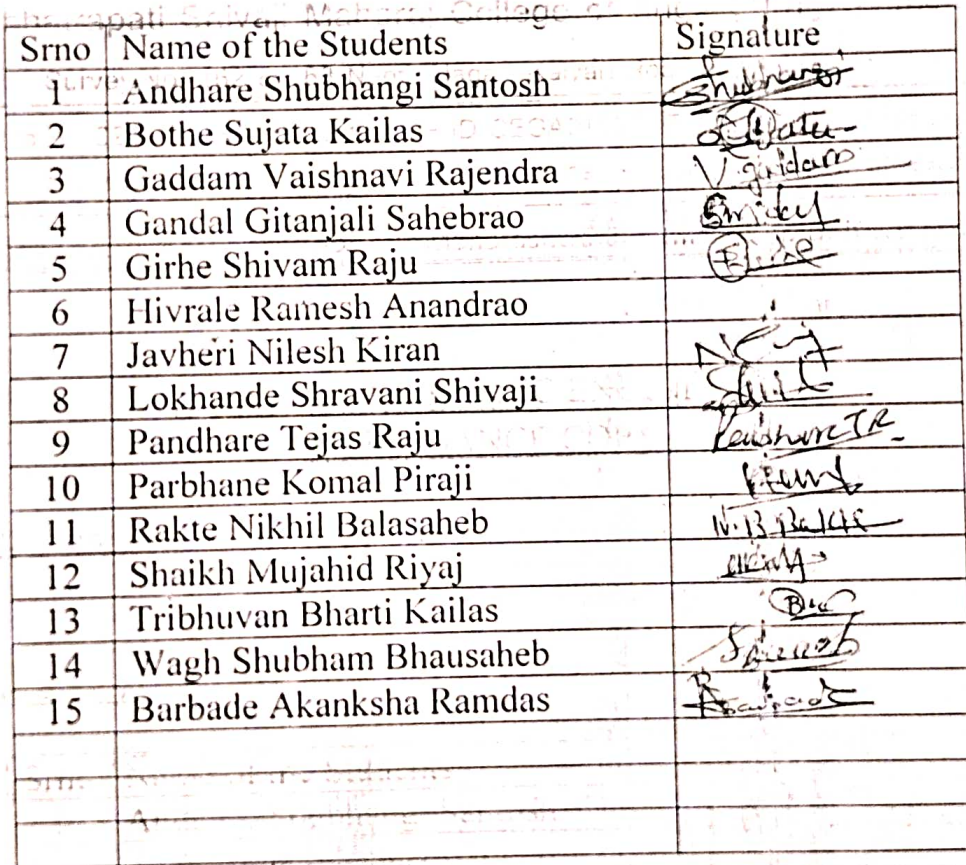 Srno Name of the Students Signature
1 Andhare Shubhangi Santosh Shubhangi
2 Bothe Sujata Kailas
3 Gaddam Vaishnavi Rajendra V. gaddam
4 Gandal Gitanjali Sahebrao
5 Girhe Shivam Raju
6 Hivrale Ramesh Anandrao
7 Javheri Nilesh Kiran
8 Lokhande Shravani Shivaji
9 Pandhare Tejas Raju Pandhare T R
10 Parbhane Komal Piraji
11 Rakte Nikhil Balasaheb N. B. Rakte
12 Shaikh Mujahid Riyaj
13 Tribhuvan Bharti Kailas
14 Wagh Shubham Bhausaheb
15 Barbade Akanksha Ramdas